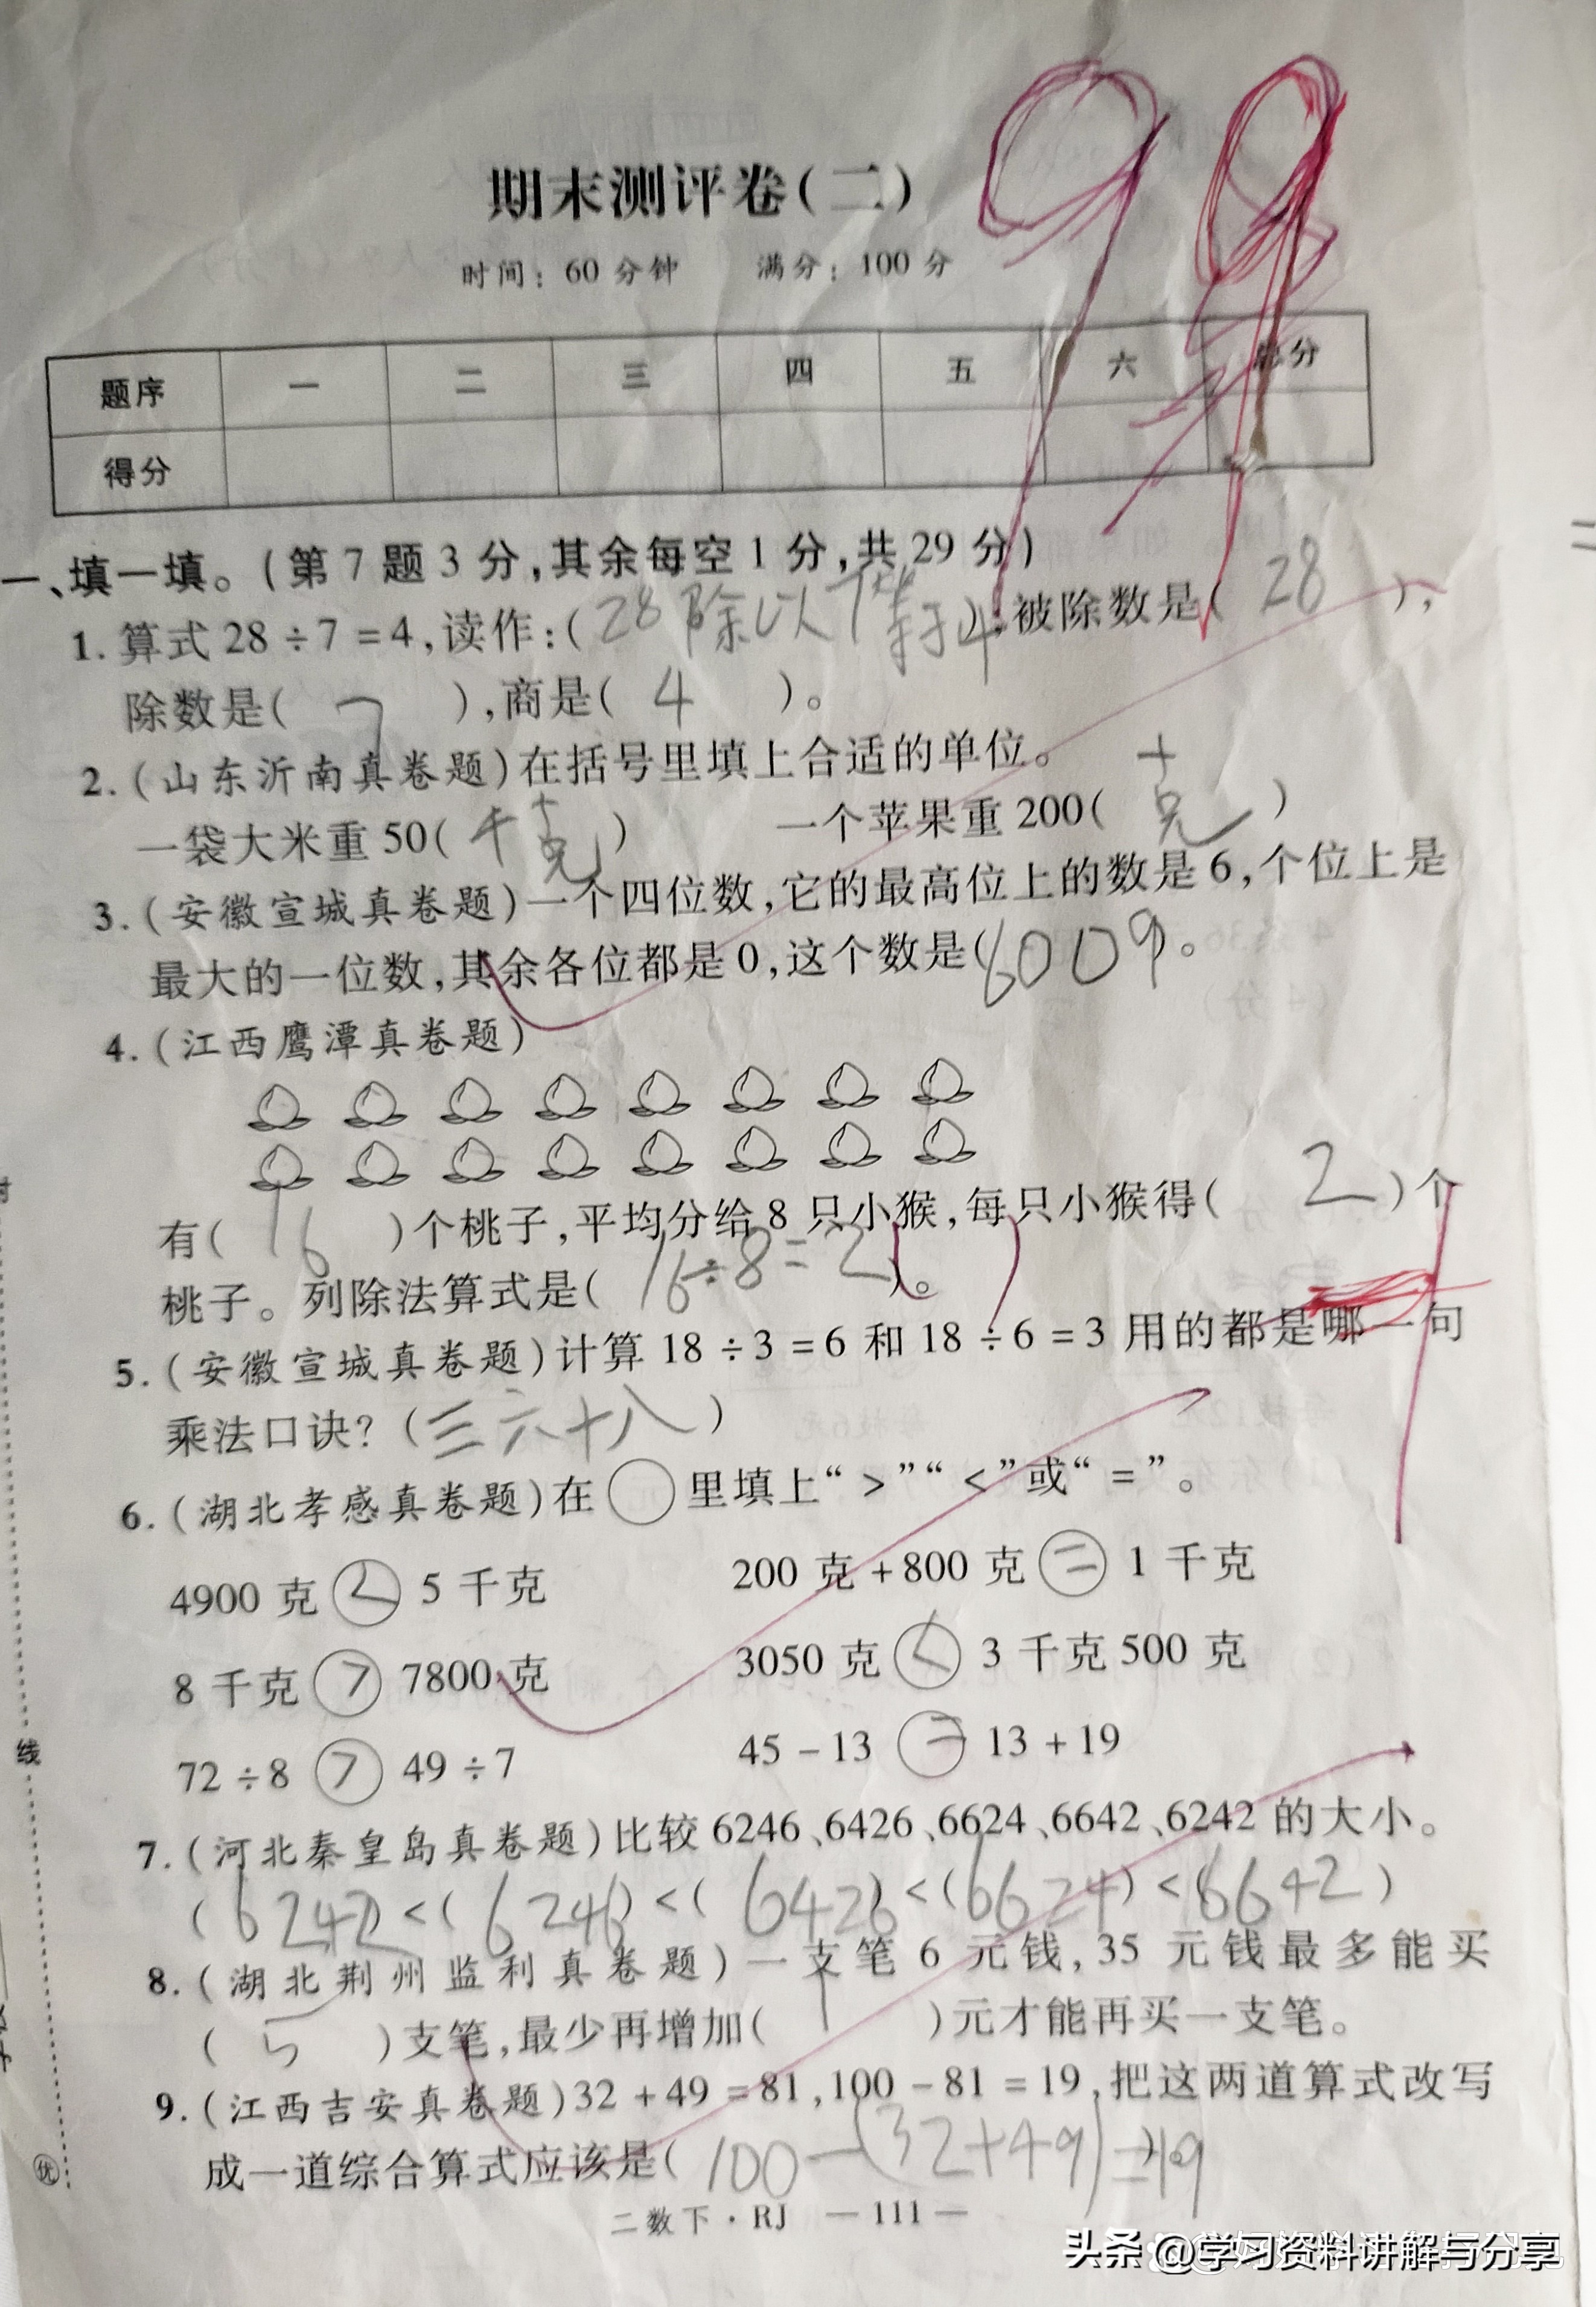 99
期末测评卷(二)
时间：60分钟 满分：100分
题序 一 二 三 四 五 六 总分
得分
一、填一填。(第7题3分,其余每空1分,共29分)
1. 算式28÷7=4,读作:(28除以7等于4);被除数是(28),
除数是(7),商是(4)。
2. (山东沂南真卷题)在括号里填上合适的单位。
一袋大米重50(千克) 一个苹果重200(克)
3. (安徽宣城真卷题)一个四位数,它的最高位上的数是6,个位上是
最大的一位数,其余各位都是0,这个数是(6009)。
4. (江西鹰潭真卷题)
有(16)个桃子,平均分给8只小猴,每只小猴得(2)个
桃子。列除法算式是(16÷8=2)。
5. (安徽宣城真卷题)计算18÷3=6和18÷6=3用的都是哪一句
乘法口诀?(三六十八)
6. (湖北孝感真卷题)在○里填上“>”“<”或“=”。
4900克<5千克 200克+800克=1千克
8千克>7800克 3050克<3千克500克
72÷8>49÷7 45-13=13+19
7. (河北秦皇岛真卷题)比较6246、6426、6624、6642、6242的大小。
(6242)<(6246)<(6426)<(6624)<(6642)
8. (湖北荆州监利真卷题)一支笔6元钱,35元钱最多能买
(5)支笔,最少再增加(1)元才能再买一支笔。
9. (江西吉安真卷题)32+49=81,100-81=19,把这两道算式改写
成一道综合算式应该是(100-(32+49)=19
二数下·RJ —111—
线
优
头条 @学习资料讲解与分享